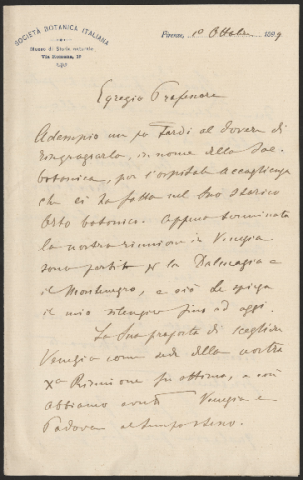 SOCIETÀ BOTANICA ITALIANA
Museo di Storia naturale,
Via Romana, 19
Firenze, 10 Ottobre 1899
Egregio Professore
Adempio un po tardi al dovere di
ringraziarla, in nome della Soc.
botanica, per l'ospitale accoglienza
che ci ha fatta nel suo storico
Orto botanico. Appena terminata
la nostra riunione in Venezia
sono partito per la Dalmazia e
il Montenegro, e ciò Le spiega
il mio silenzio fino ad oggi.
La Sua proposta di scegliere
Venezia come sede della nostra
Xa Riunione fu ottima, e così
abbiamo avuti Venezia e
Padova al tempo stesso.